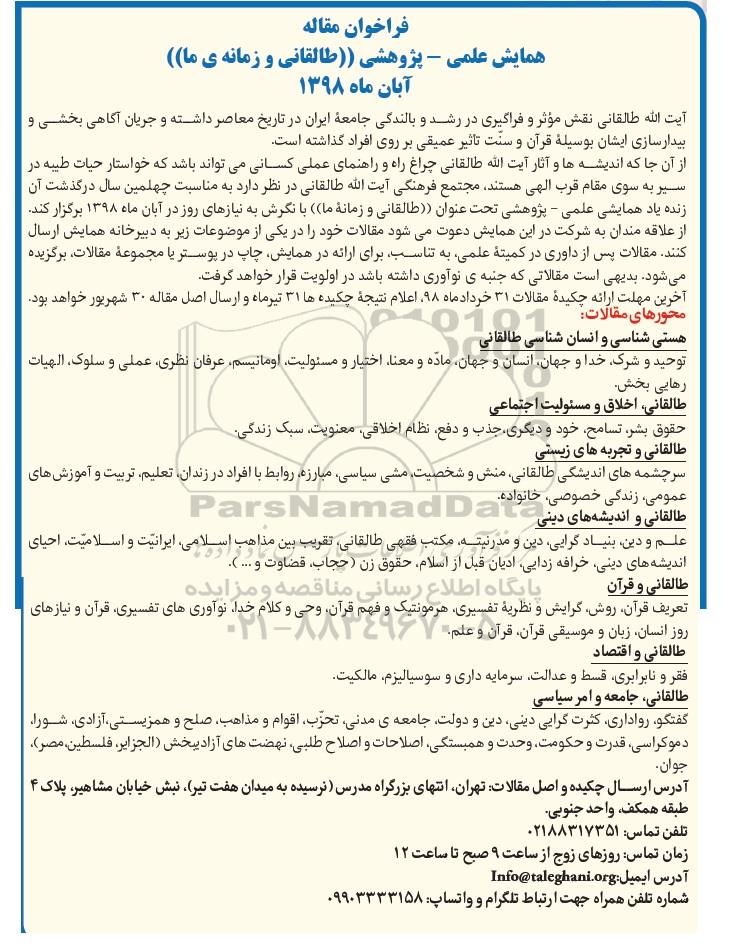 فراخوان مقاله
همایش علمی – پژوهشی ((طالقانی و زمانه ی ما))
آبان ماه ۱۳۹۸
آیت الله طالقانی نقش مؤثر و فراگیری در رشد و بالندگی جامعهٔ ایران در تاریخ معاصر داشته و جریان آگاهی بخشی و
بیدارسازی ایشان بوسیلهٔ قرآن و سنّت تأثیر عمیقی بر روی افراد گذاشته است.
از آن جا که اندیشه ها و آثار آیت الله طالقانی چراغ راه و راهنمای عملی کسانی می تواند باشد که خواستار حیات طیبه در
سیر به سوی مقام قرب الهی هستند، مجتمع فرهنگی آیت الله طالقانی در نظر دارد به مناسبت چهلمین سال درگذشت آن
زنده یاد همایشی علمی - پژوهشی تحت عنوان ((طالقانی و زمانهٔ ما)) با نگرش به نیازهای روز در آبان ماه ۱۳۹۸ برگزار کند.
از علاقه مندان به شرکت در این همایش دعوت می شود مقالات خود را در یکی از موضوعات زیر به دبیرخانه همایش ارسال
کنند. مقالات پس از داوری در کمیتهٔ علمی، به تناسب، برای ارائه در همایش، چاپ در پوستر یا مجموعهٔ مقالات، برگزیده
می‌شود. بدیهی است مقالاتی که جنبه ی نوآوری داشته باشد در اولویت قرار خواهد گرفت.
آخرین مهلت ارائه چکیدهٔ مقالات ۳۱ خردادماه ۹۸، اعلام نتیجهٔ چکیده ها ۳۱ تیرماه و ارسال اصل مقاله ۳۰ شهریور خواهد بود.
محورهای مقالات:
هستی شناسی و انسان شناسی طالقانی
توحید و شرک، خدا و جهان، انسان و جهان، مادّه و معنا، اختیار و مسئولیت، اومانیسم، عرفان نظری، عملی و سلوک، الهیات
رهایی بخش.
طالقانی، اخلاق و مسئولیت اجتماعی
حقوق بشر، تسامح، خود و دیگری،جذب و دفع، نظام اخلاقی، معنویت، سبک زندگی.
طالقانی و تجربه های زیستی
سرچشمه های اندیشگی طالقانی، منش و شخصیت، مشی سیاسی، مبارزه، روابط با افراد در زندان، تعلیم، تربیت و آموزش‌های
عمومی، زندگی خصوصی، خانواده.
ParsNamadData
طالقانی و اندیشه‌های دینی
علم و دین، بنیاد گرایی، دین و مدرنیته، مکتب فقهی طالقانی، تقریب بین مذاهب اسلامی، ایرانیّت و اسلامیّت، احیای
اندیشه‌های دینی، خرافه زدایی، ادیان قبل از اسلام، حقوق زن (حجاب، قضاوت و ... ).
پایگاه اطلاع رسانی مناقصه و مزایده
طالقانی و قرآن
تعریف قرآن، روش، گرایش و نظریهٔ تفسیری، هرمونتیک و فهم قرآن، وحی و کلام خدا، نوآوری های تفسیری، قرآن و نیازهای
روز انسان، زبان و موسیقی قرآن، قرآن و علم.
۰۲۱-۸۸۳۴۹۶۷۰-۵
طالقانی و اقتصاد
فقر و نابرابری، قسط و عدالت، سرمایه داری و سوسیالیزم، مالکیت.
طالقانی، جامعه و امر سیاسی
گفتگو، رواداری، کثرت گرایی دینی، دین و دولت، جامعه ی مدنی، تحزّب، اقوام و مذاهب، صلح و همزیستی،آزادی، شورا،
دموکراسی، قدرت و حکومت، وحدت و همبستگی، اصلاحات و اصلاح طلبی، نهضت های آزادیبخش (الجزایر، فلسطین،مصر)،
جوان.
آدرس ارسال چکیده و اصل مقالات: تهران، انتهای بزرگراه مدرس (نرسیده به میدان هفت تیر)، نبش خیابان مشاهیر، پلاک ۴
طبقه همکف، واحد جنوبی.
تلفن تماس: ۰۲۱۸۸۳۱۷۳۵۱
زمان تماس: روزهای زوج از ساعت ۹ صبح تا ساعت ۱۲
آدرس ایمیل:Info@taleghani.org
شماره تلفن همراه جهت ارتباط تلگرام و واتساپ: ۰۹۹۰۳۳۳۳۱۵۸